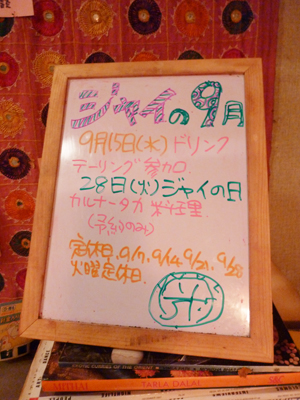 ジャイの9月
9月15日(水)ドリンク
テーリング参加
28日(火)ジャイの日
カルナータカ料理
(予約のみ)
定休日、9/7、9/14、9/21、9/28
火曜定休日
TARLA DALAL